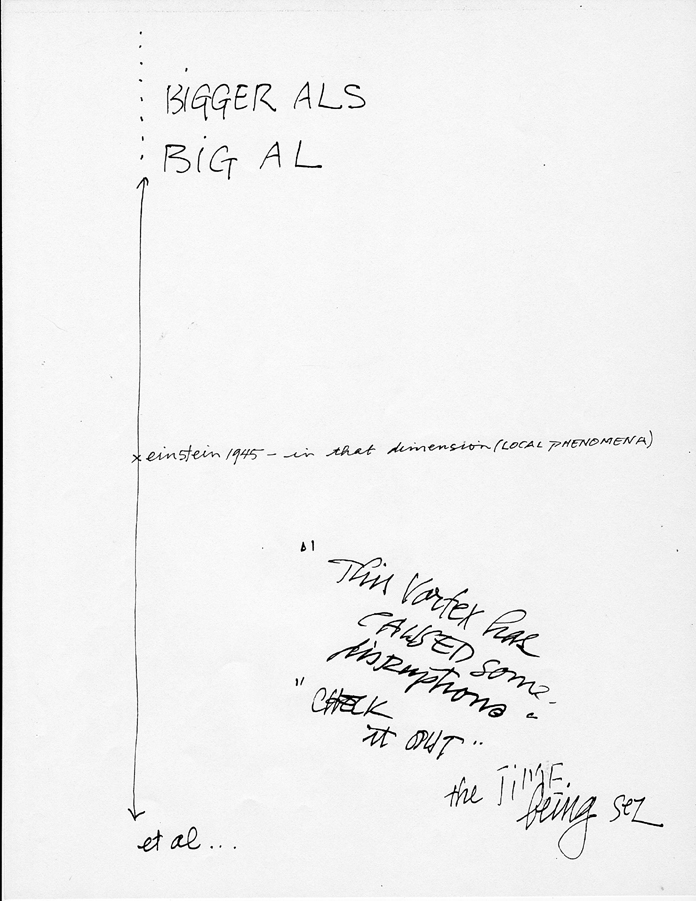 BIGGER ALS
BIG AL
x einstein 1945 – in that dimension (LOCAL PHENOMENA)
"This Vortex has
CAUSED some
disruptions"
"CHECK
it OUT"
the TIME
being sez
et al...